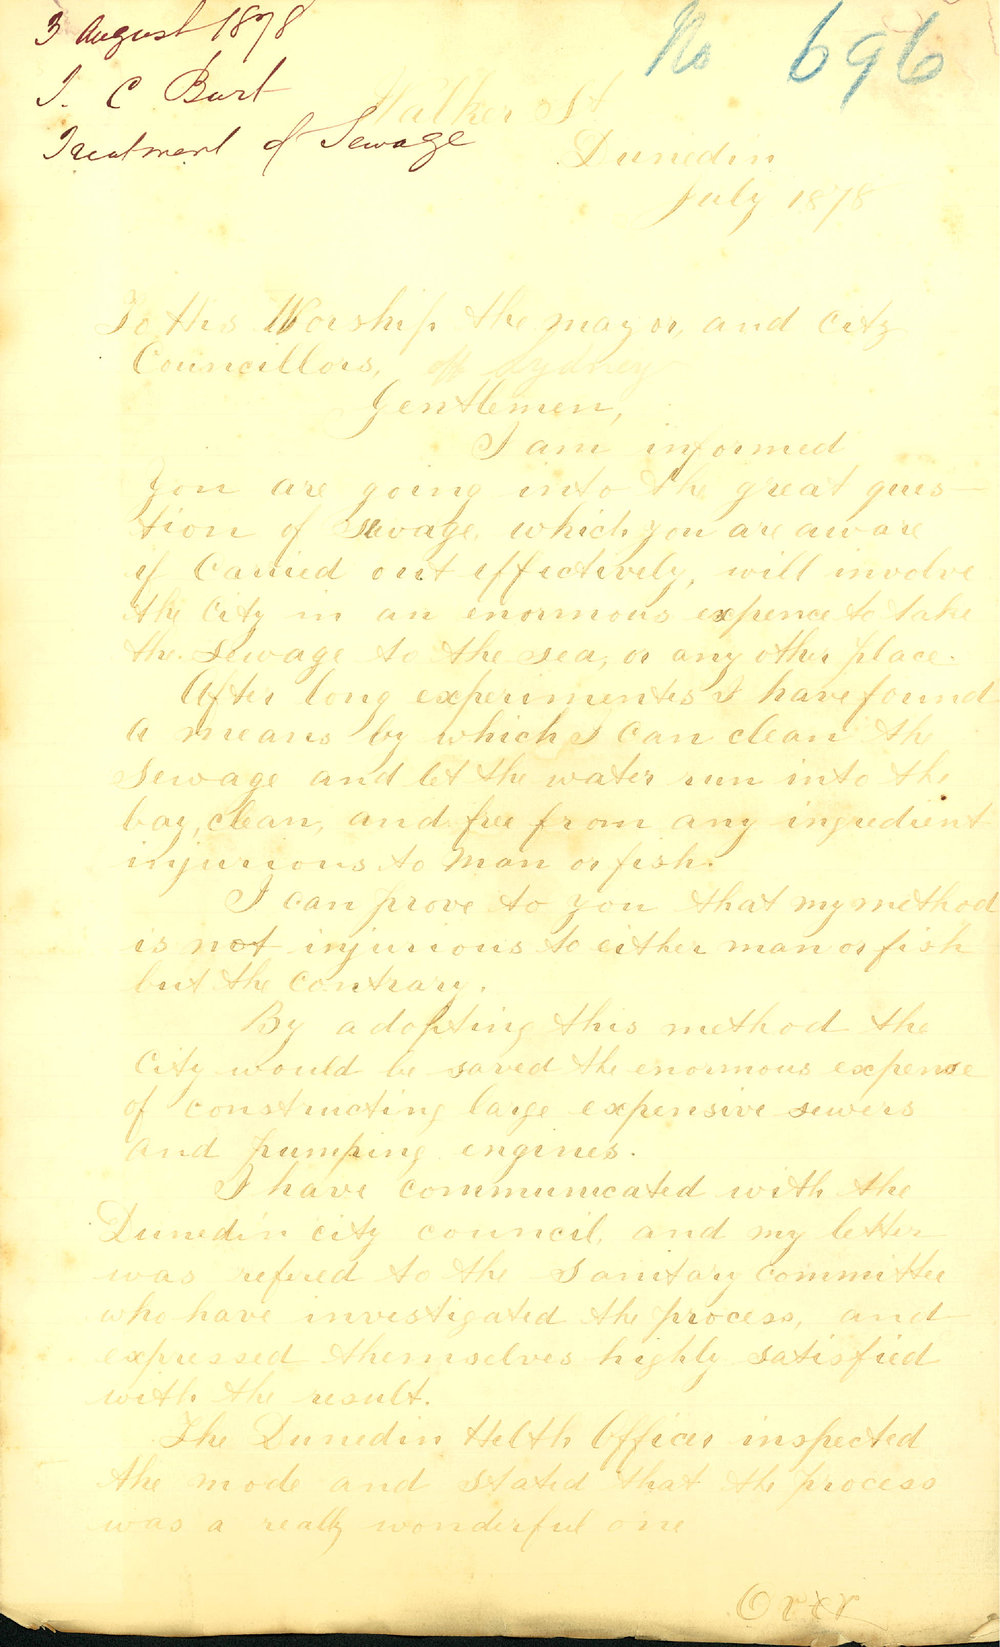 3 August 1878
No 696
J. C Burt
Treatment of Sewage
Walker St
Dunedin
July 1878
To His Worship the mayor, and city
Councillors, off Sydney
Gentlemen,
I am informed
you are going into the great ques-
tion of Sewage, which you are aware
if Carried out effectively, will involve
the City in an enormous expence to take
the Sewage to the sea, or any other place.
After long experiments I have found
a means by which I can clean the
Sewage and let the water run into the
bay, clean, and free from any ingredient
injurious to man or fish.
I can prove to you that my method
is not injurious to either man or fish
but the contrary.
By adopting this method the
City would be saved the enormous expense
of constructing large expensive sewers
and pumping engines.
I have communicated with the
Dunedin city council, and my letter
was refered to the Sanitary Committee
who have investigated the process, and
expressed themselves highly satisfied
with the result.
The Dunedin Helth Officer inspected
the mode and stated that the process
was a really wonderful one
Over